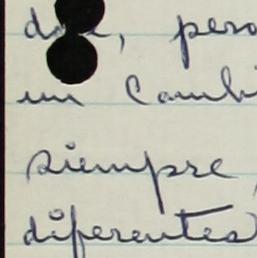 pero
un cambi
siempre
diferentes